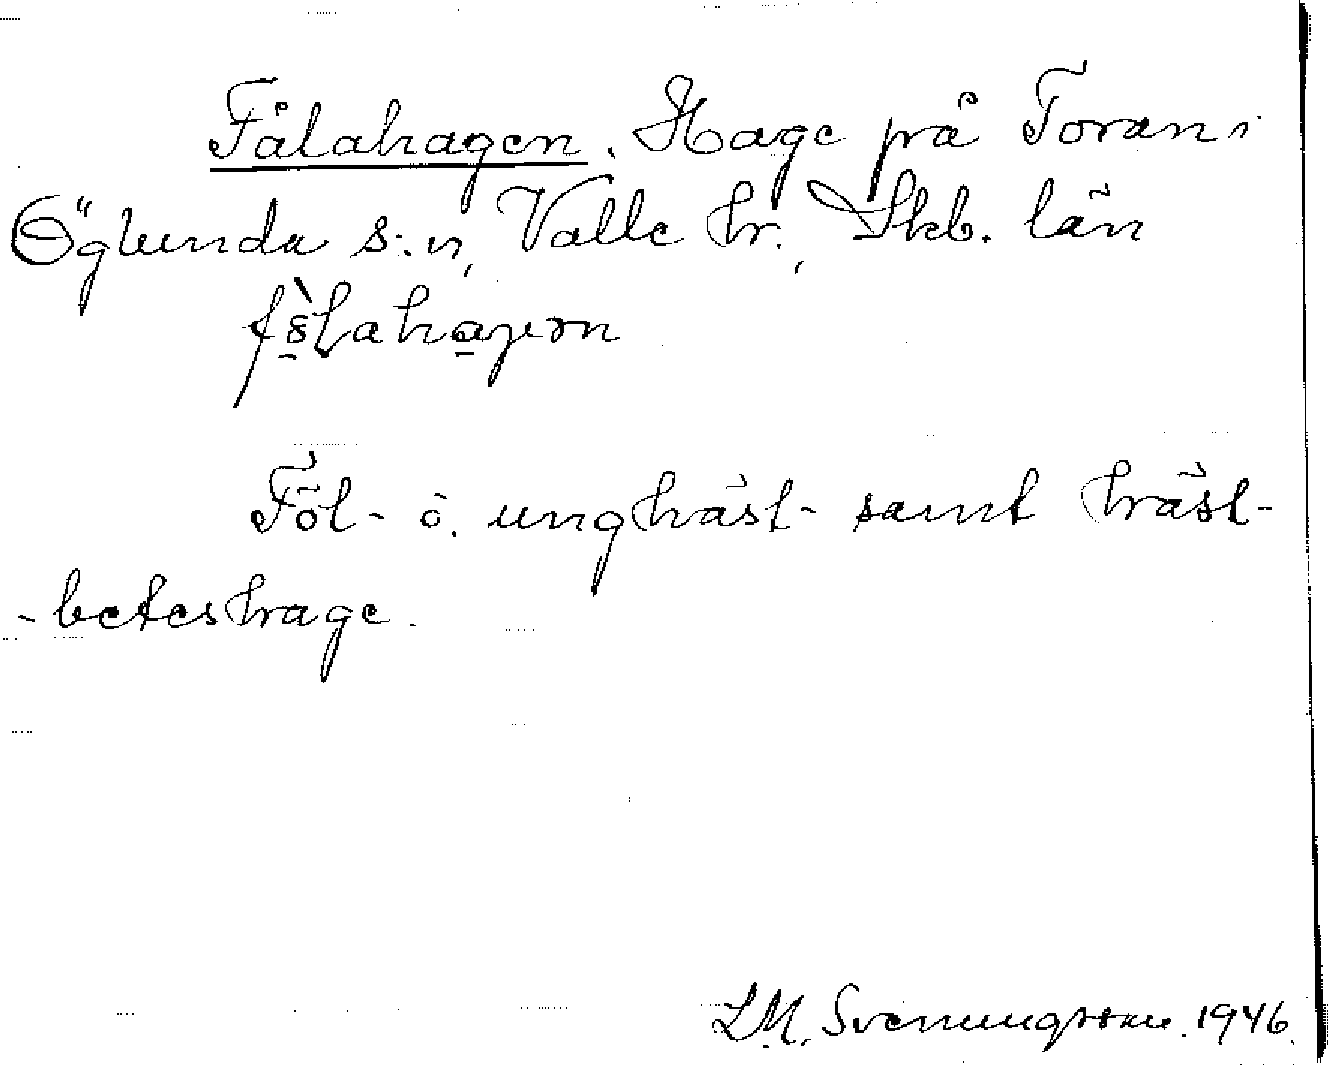 Fålahagen. Hage på Toran i
Öglunda s:n, Valle hr., Skb. län
Föl- o. unghäst- samt häst-
-beteshage.
L.M. Svenungsson. 1946.